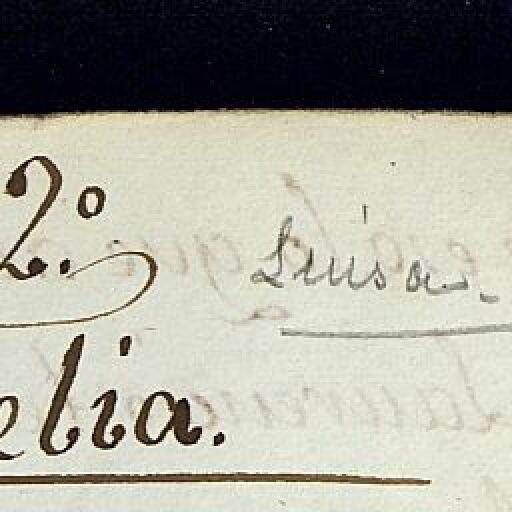 2º.
Luisa.
elia.